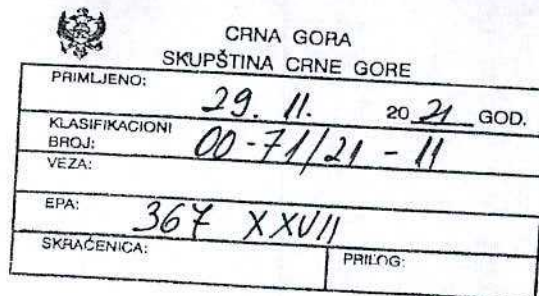 CRNA GORA
SKUPŠTINA CRNE GORE
PRIMLJENO: 29. 11. 20 21 GOD.
KLASIFIKACIONI
BROJ: 00-71/21-11
VEZA:
EPA: 367 XXVII
SKRAĆENICA: PRILOG: